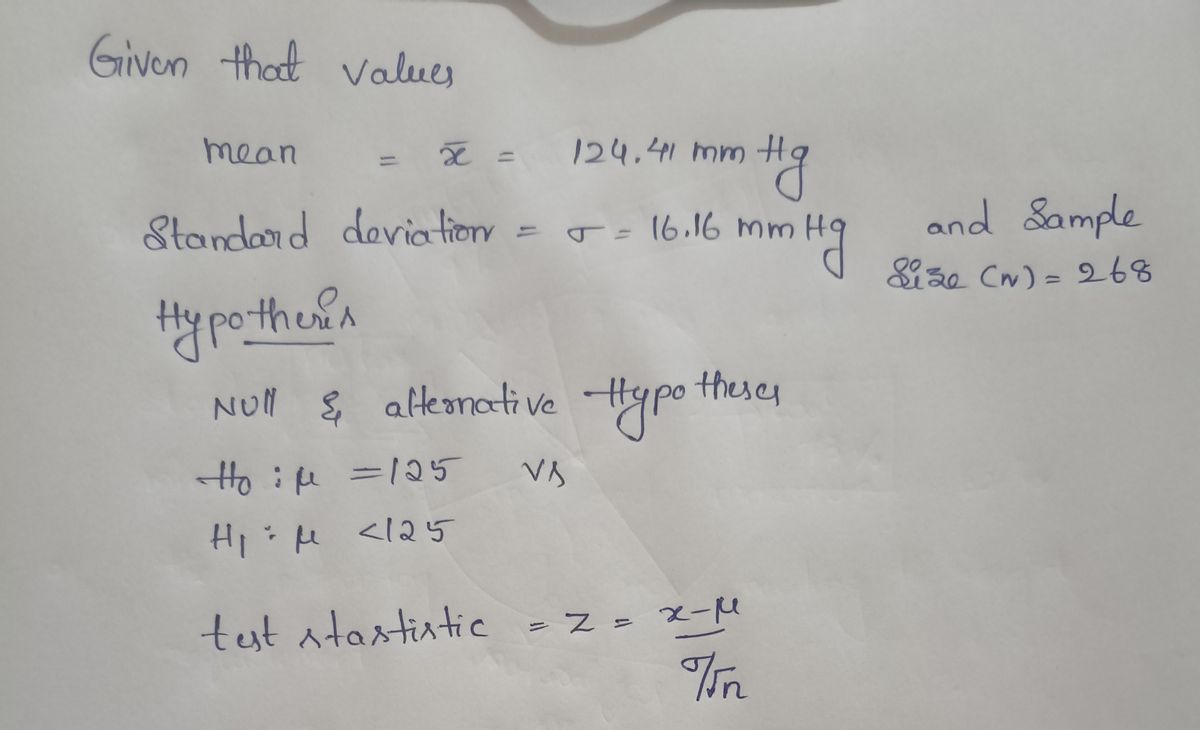 Given that values
mean = x̄ = 124.41 mm Hg
Standard deviation = σ = 16.16 mm Hg and Sample
Size (n) = 268
Hypothesis
Null & alternative Hypotheses
H₀ : μ = 125 vs
H₁ : μ < 125
test stastistic = Z = x-μ
σ/√n